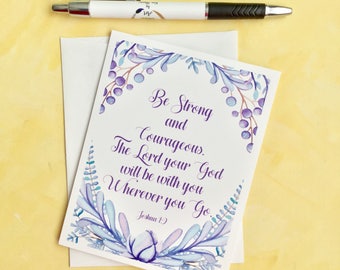 Be Strong
and
Courageous.
The Lord your God
will be with you
Wherever you Go
Joshua 1:9